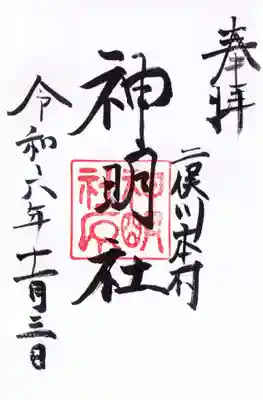 奉拝
二俣川本村
神明社
令和六年十一月三日
神明社印